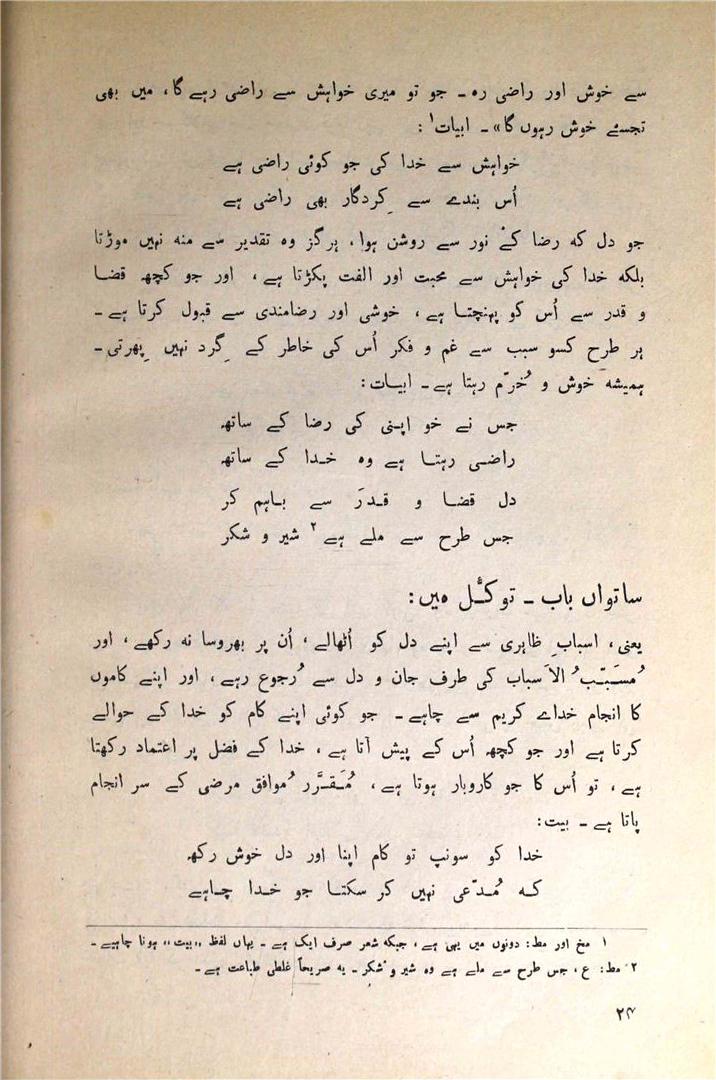 سے خوش اور راضی رہ ـ جو تو میری خواہش سے راضی رہے گا، میں بھی
تجسے خوش رہوں گا» ـ ابیات۱ :
خواہش سے خدا کی جو کوئی راضی ہے
اُس بندے سے کِردگار بھی راضی ہے
جو دل کہ رضا کے نور سے روشن ہوا، ہرگز وہ تقدیر سے منہ نہیں موڑتا
بلکہ خدا کی خواہش سے محبت اور الفت پکڑتا ہے، اور جو کچھ قضا
و قدر سے اُس کو پہنچتا ہے، خوشی اور رضامندی سے قبول کرتا ہے ـ
ہر طرح کسو سبب سے غم و فکر اُس کی خاطر کے گِرد نہیں پِھرتی ـ
ہمیشہ خوش و خُرّم رہتا ہے ـ ابیات :
جس نے خو اپنی کی رضا کے ساتھ
راضی رہتا ہے وہ خدا کے ساتھ
دل قضا و قدَر سے باہم کر
جس طرح سے ملے ہے۲ شیر و شکر
ساتواں باب ـ توکُّل میں :
یعنی، اسبابِ ظاہری سے اپنے دل کو اُٹھالے، اُن پر بھروسا نہ رکھے، اور
مُسَبّبُ الاَسباب کی طرف جان و دل سے رُجوع رہے، اور اپنے کاموں
کا انجام خداے کریم سے چاہے ـ جو کوئی اپنے کام کو خدا کے حوالے
کرتا ہے اور جو کچھ اُس کے پیش آتا ہے، خدا کے فضل پر اعتماد رکھتا
ہے، تو اُس کا جو کاروبار ہوتا ہے، مُقَرَّر مُوافق مرضی کے سر انجام
پاتا ہے ـ بیت :
خدا کو سونپ تو کام اپنا اور دل خوش رکھ
کہ مُدّعی نہیں کر سکتا جو خدا چاہے
۱ مخ اور مط : دونوں میں یہی ہے، جبکہ شعر صرف ایک ہے ـ یہاں لفظ ,,بیت،، ہونا چاہیے ـ
۲ مط : ع، جس طرح سے ملے ہے وہ شیر و شکر ـ یہ صریحاً غلطی طباعت ہے ـ
۲۴